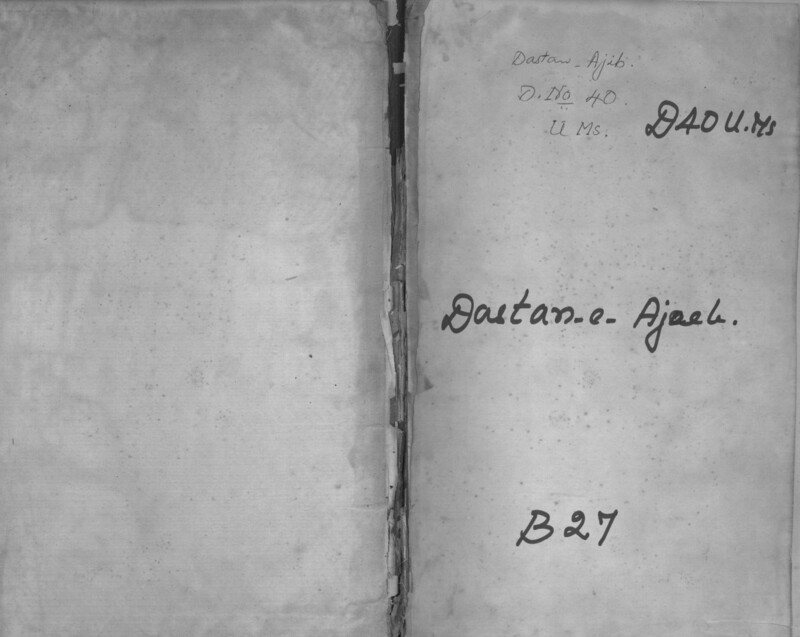 Dastan - Ajib.
D. No 40.
U Ms.
D40 U. Ms
Dastan-e- Ajaeb.
B 27